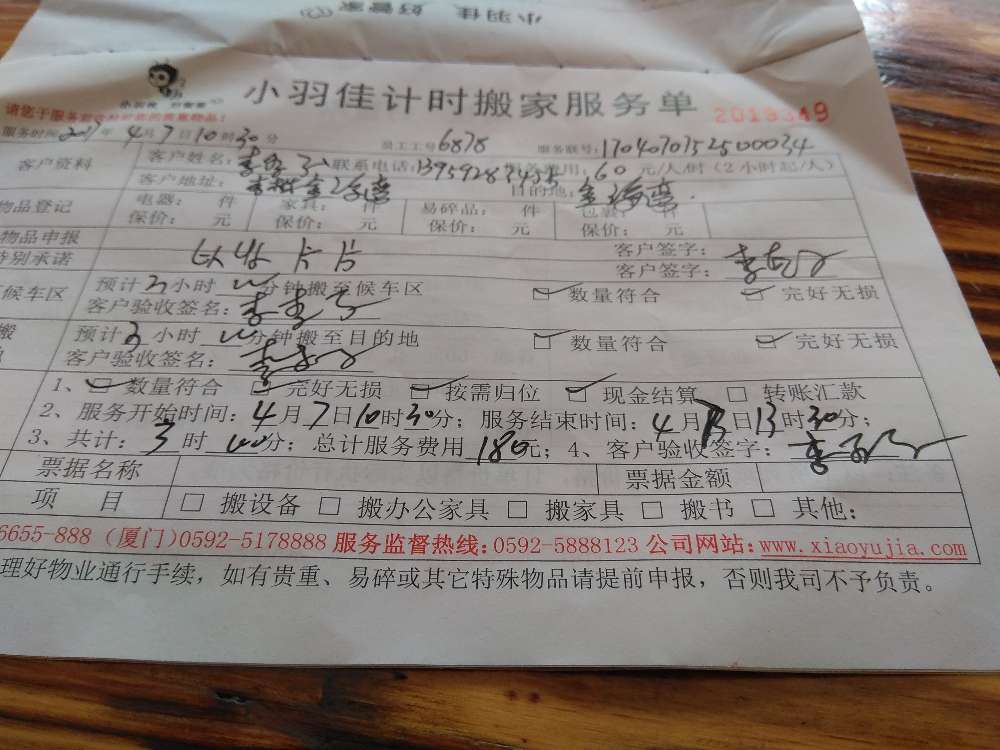 小羽佳 好管家
小羽佳 好管家
小羽佳计时搬家服务单 2019349
服务时间:2017年4月7日10时30分 员工工号6878 服务联号:1704070152500034
客户资料 客户姓名: 联系电话: 服务费用:60元/人/时(2小时起/人)
客户地址: 目的地:
物品登记 电器: 件 家具: 件 易碎品: 件 包裹: 件
保价: 元 保价: 元 保价: 元 保价: 元
物品申报 客户签字:
特别承诺 客户签字:
候车区 预计3小时 分钟搬至候车区 数量符合 完好无损
客户验收签名:
搬 预计3小时 分钟搬至目的地 数量符合 完好无损
客户验收签名:
1、数量符合 完好无损 按需归位 现金结算 转账汇款
2、服务开始时间:4月7日10时30分; 服务结束时间:4月7日13时30分;
3、共计:3时00分; 总计服务费用180元; 4、客户验收签字:
票据名称 票据金额
项 目 搬设备 搬办公家具 搬家具 搬书 其他:
6655-888 (厦门)0592-5178888 服务监督热线:0592-5888123 公司网站:www.xiaoyujia.com
理好物业通行手续,如有贵重、易碎或其它特殊物品请提前申报,否则我司不予负责。